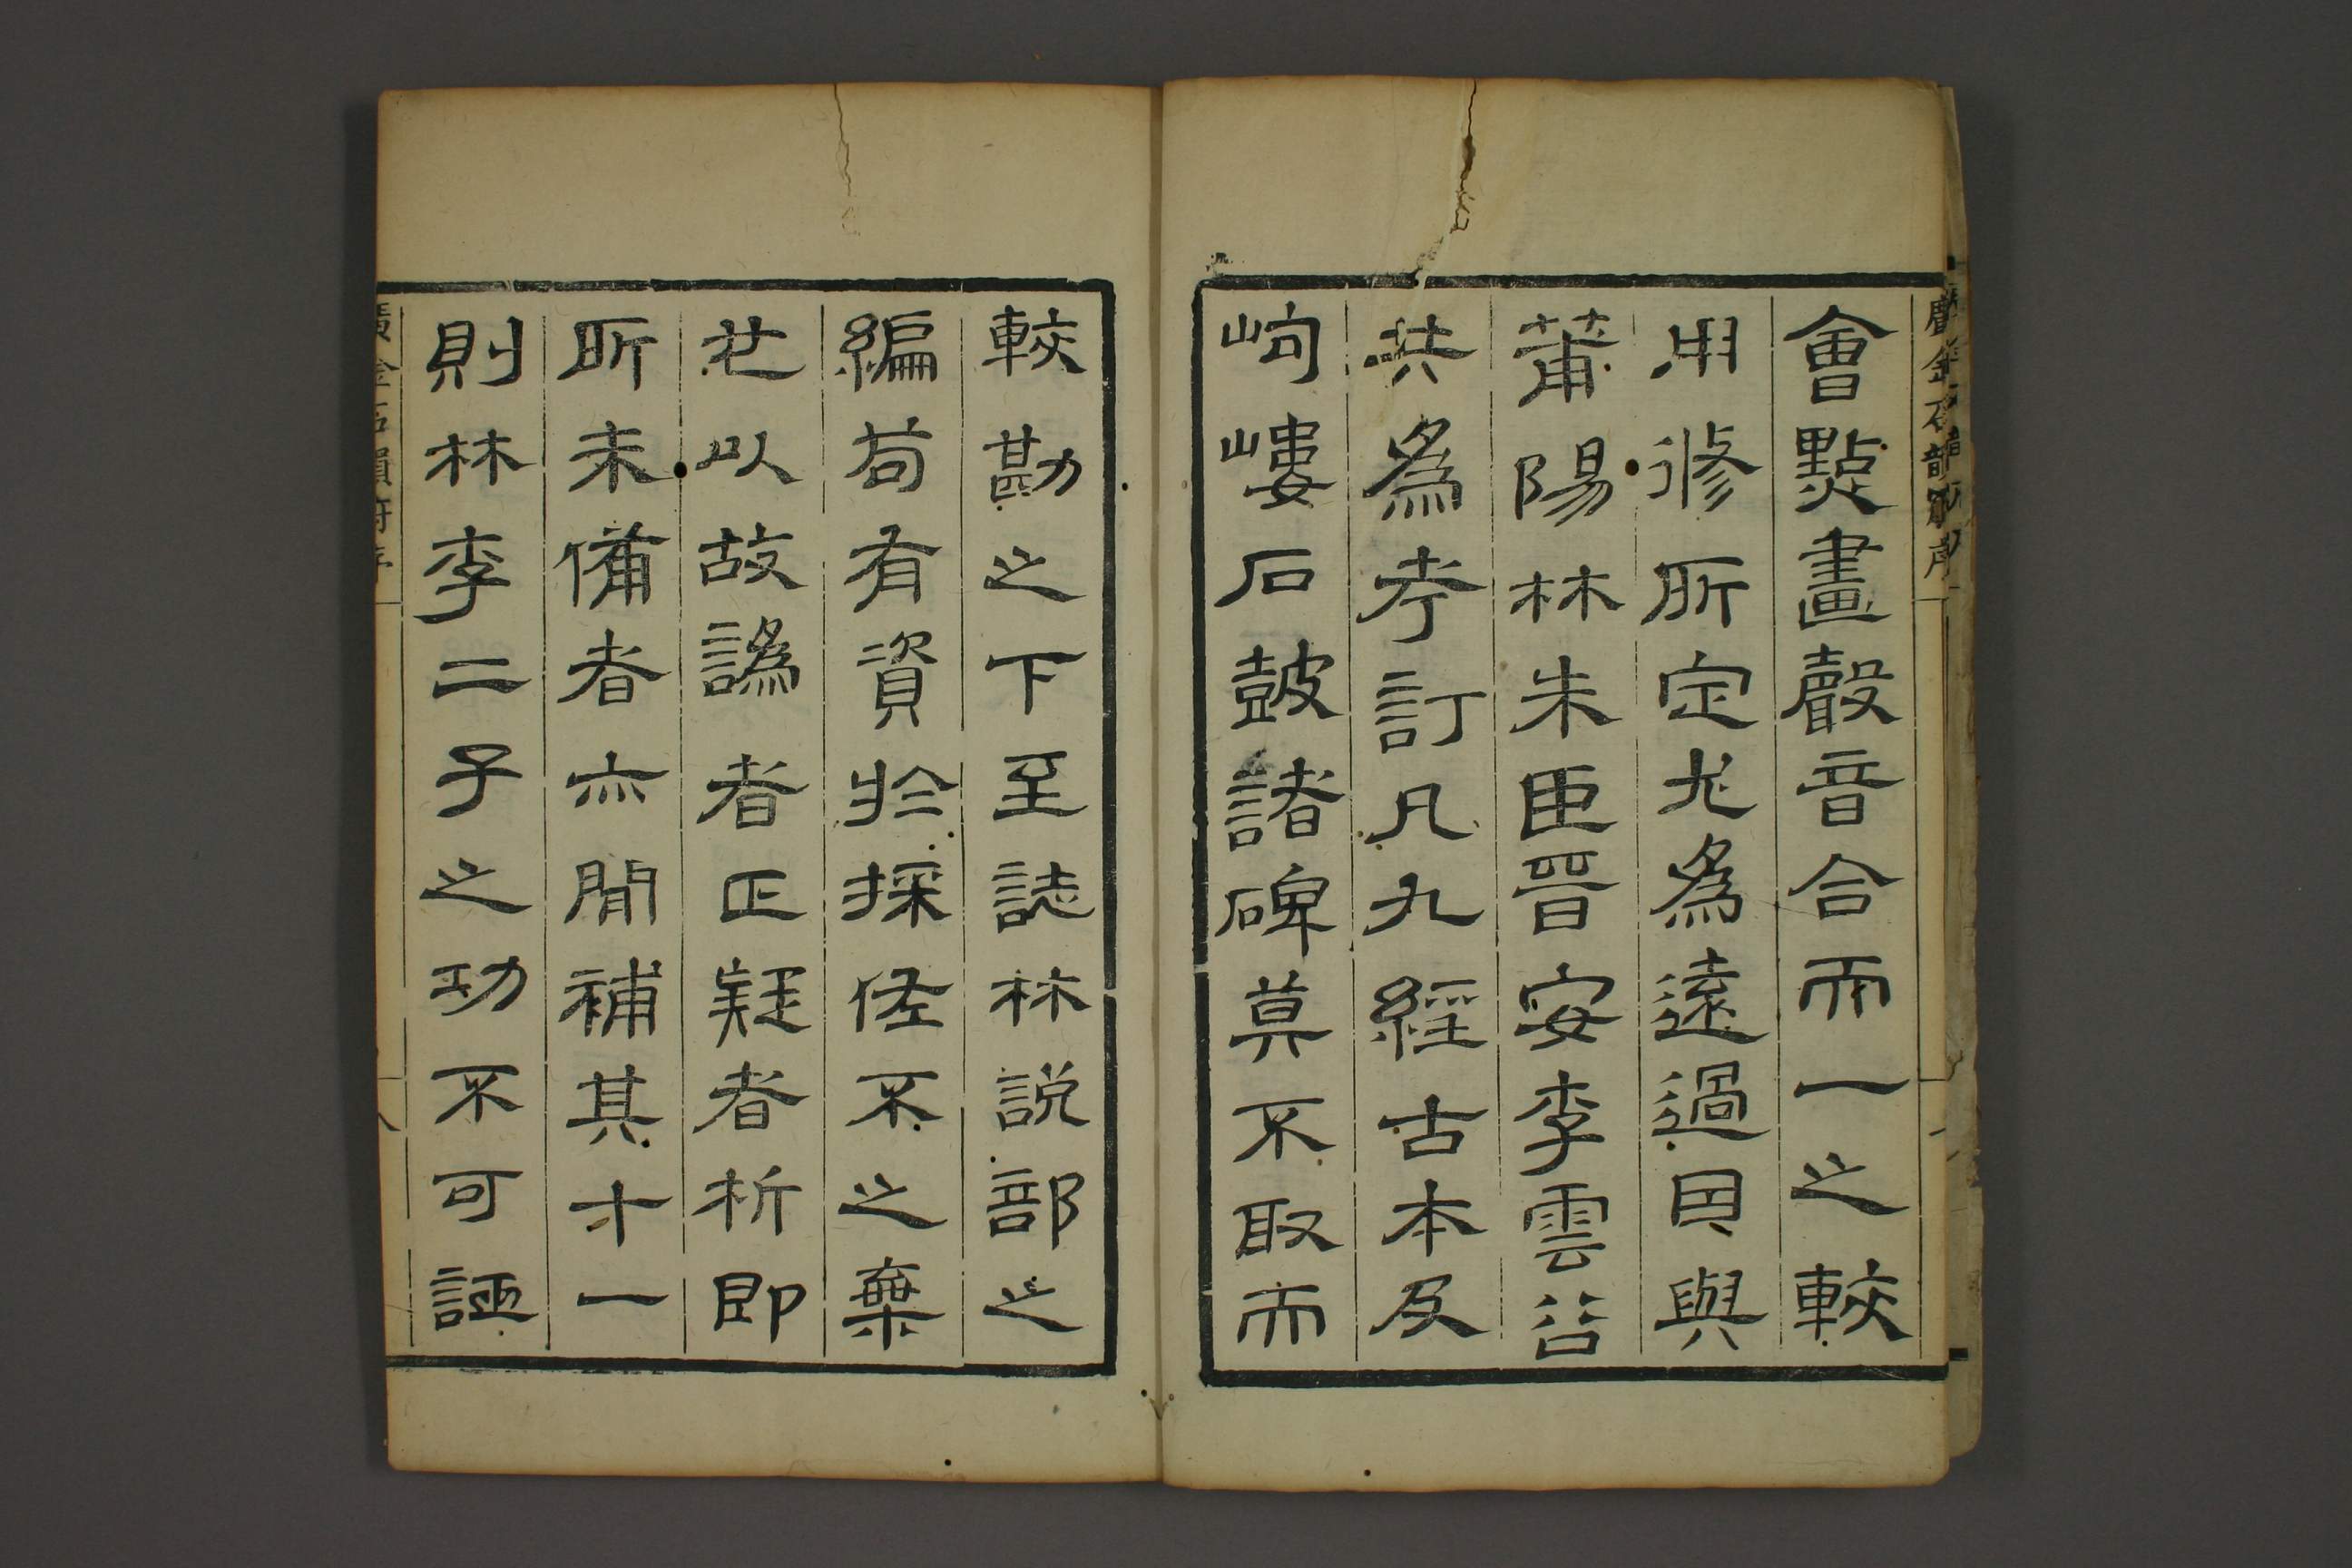 會點畫聲音合而一之較
用修所定尤為遠過因與
莆陽林朱臣晉安李雲谷
共為考訂凡九經古本及
岣嶁石鼓諸碑莫不取而
較勘之下至誌林説部之
編苟有資於採侄不之棄
也以故譌者正疑者析即
所未備者亦間補其十一
則林李二子之功不可誣
廣金石韻府序